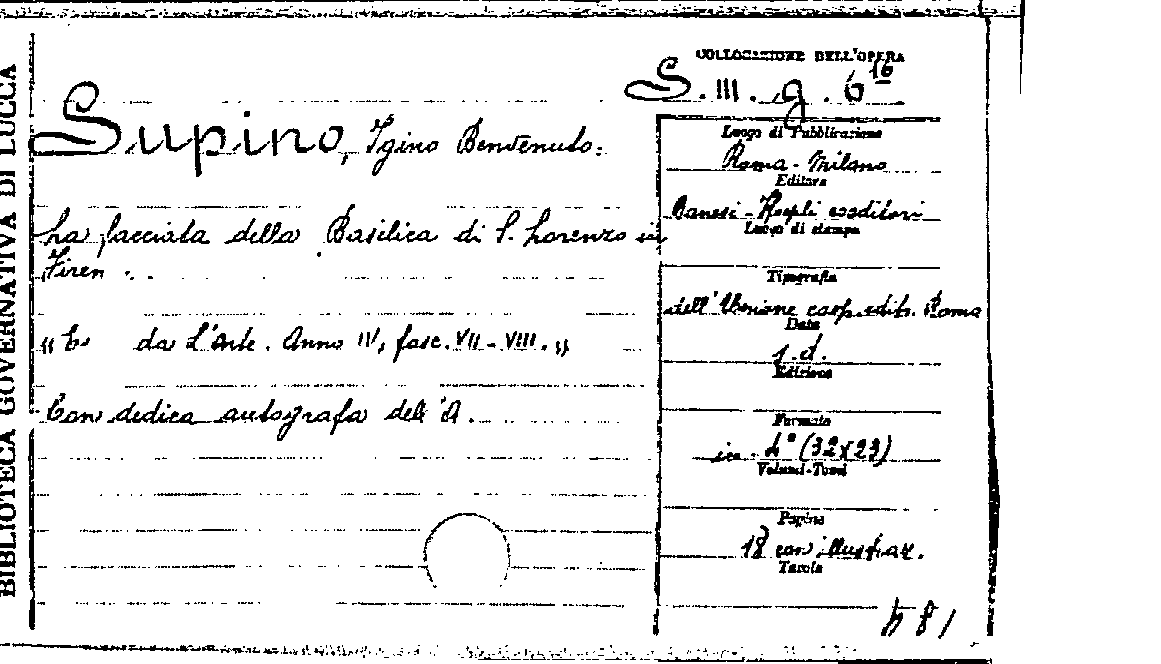 BIBLIOTECA GOVERNATIVA DI LUCCA
COLLOCAZIONE DELL'OPERA
S. III. g. 6 16
Supino, Igino Benvenuto:
La facciata della Basilica di S. Lorenzo in
Firen . .
« E da L'Arte. Anno IV, fasc. VII - VIII. »
Con dedica autografa dell'A.
Luogo di Pubblicazione
Roma - Milano
Editore
Danesi - Hoepli coeditori
Luogo di stampa
Tipografia
dell'Unione coop. edit. Roma
Data
s. d.
Edizione
Formato
in - 4° (32x23)
Volumi-Tomi
Pagine
18 con illustraz.
Tavole